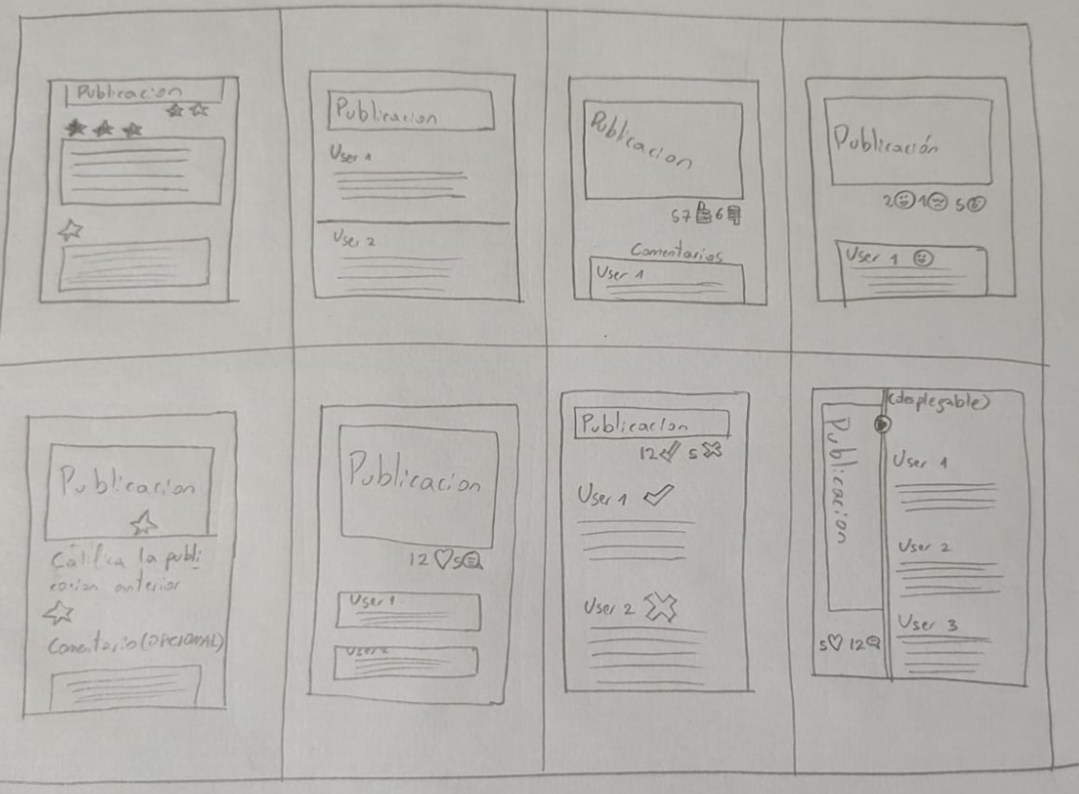 Publicacion
Publicacion
User 1
User 2
Publicacion
57 6
Comentarios
User 1
Publicación
2 1 5
User 1
Publicacion
Califica la publi
cacion anterior
Comentario (OPCIONAL)
Publicacion
12 5
User 1
User 2
Publicacion
12 5
User 1
User 2
(desplegable)
Publicacion
User 1
User 2
User 3
5 12